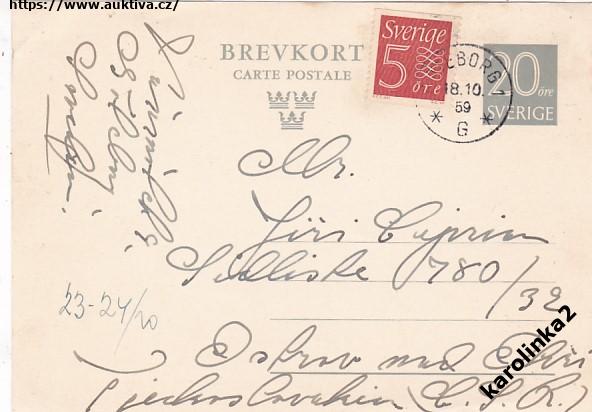 https://www.auktiva.cz/
BREVKORT
CARTE POSTALE
Sverige
5
öre
EBORG
18.10
59
* G *
20 öre
SVERIGE
Mr.
Jiří Ciprian
Sidliste 780/32
23-24/10
Ostrov nad Ohři
(C.S.R.)
karolinka2